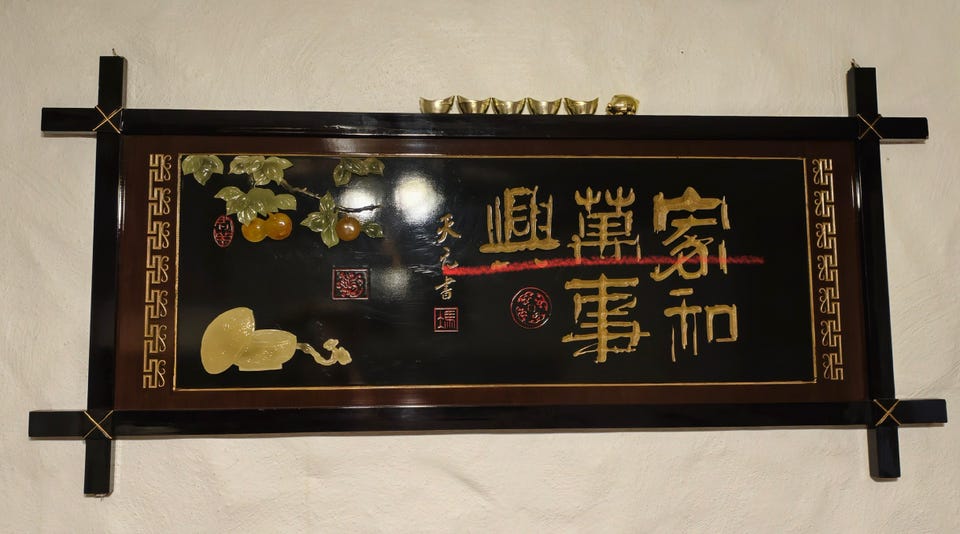 家和
萬事
興
天元書